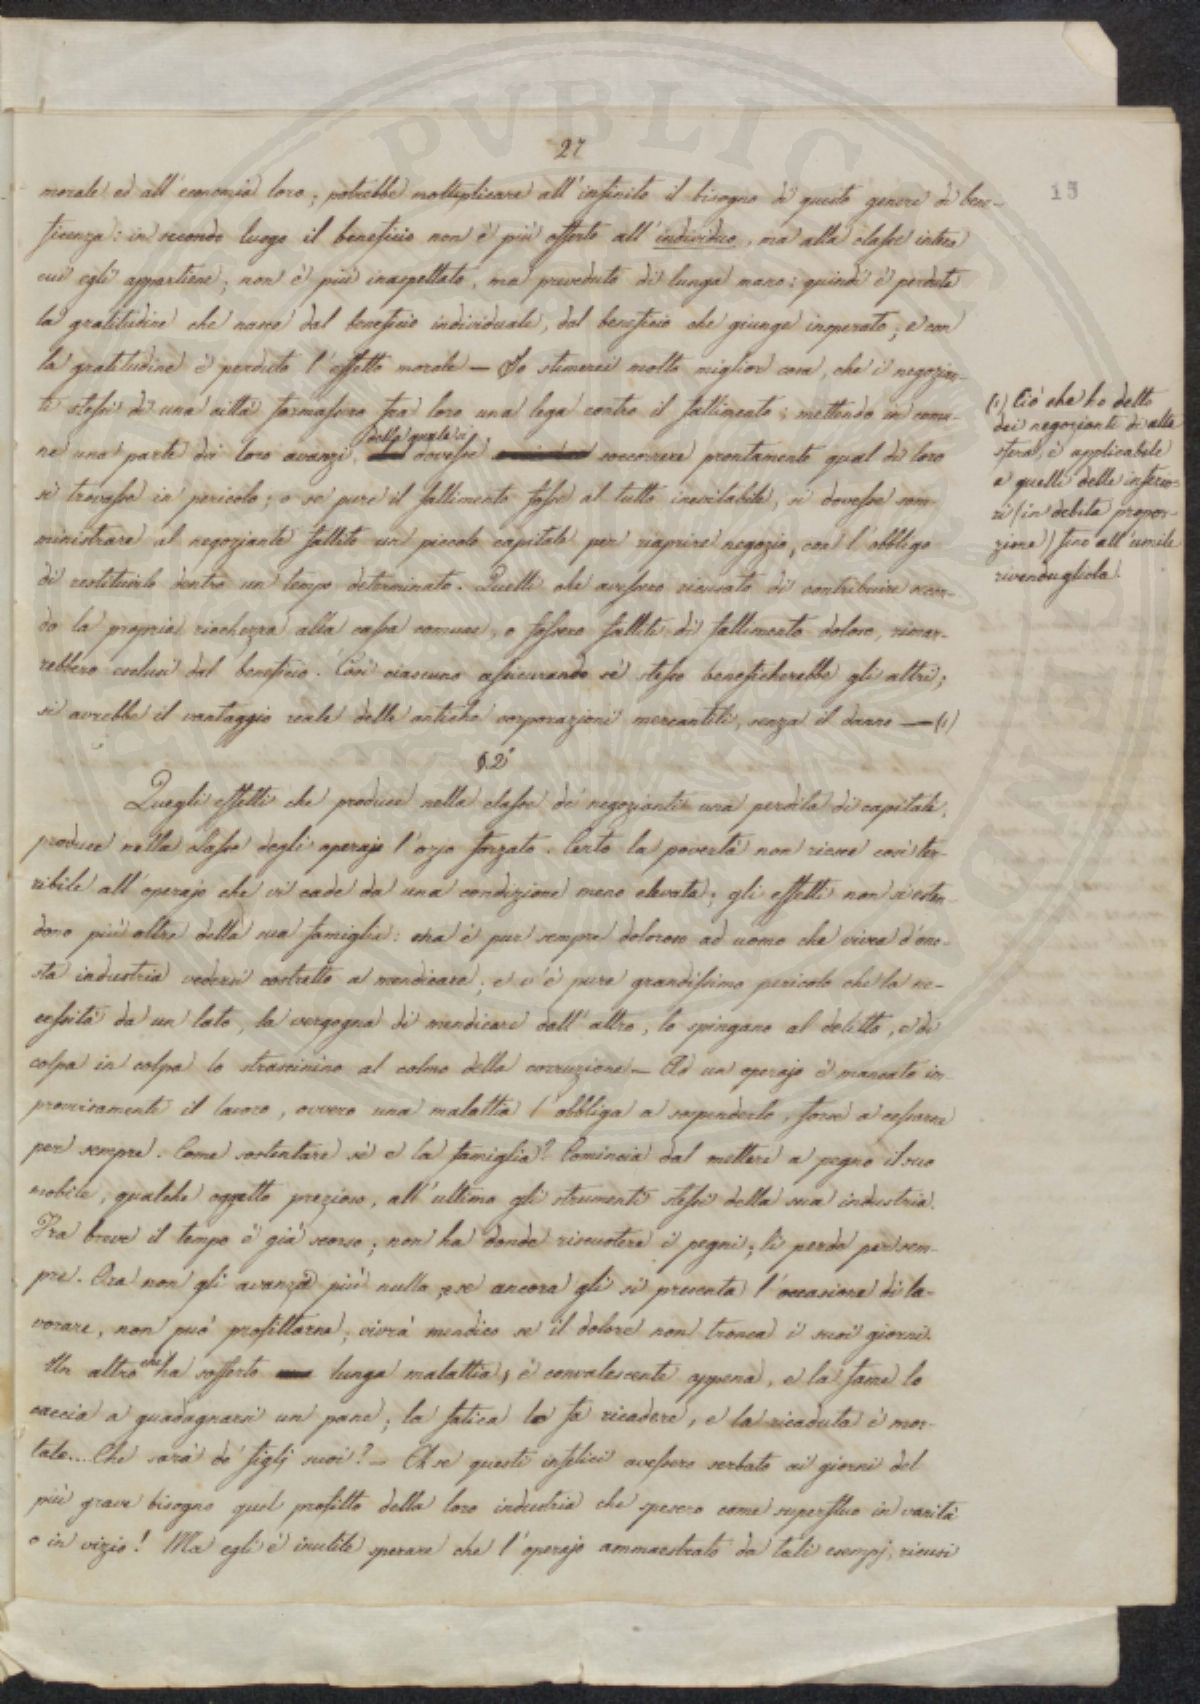 27
15
morale ed all'economia loro; potrebbe moltiplicare all'infinito il bisogno di questo genere di bene-
ficenza: in secondo luogo il beneficio non è più offerto all'individuo, ma alla classe intera
cui egli appartiene; non è più inaspettato, ma preveduto di lunga mano: quindi è perduta
la gratitudine che nasce dal beneficio individuale, dal beneficio che giunge insperato; e con
la gratitudine è perduto l'effetto morale — Io stimerei molto miglior cosa, che i negozian-
ti stessi di una città formassero fra loro una lega contro il fallimento; mettendo in comu-
ne una parte dei loro avanzi, dalla quale si dovesse soccorrere prontamente qual di loro
si trovasse in pericolo; o se pure il fallimento fosse al tutto inevitabile, si dovesse som-
ministrare al negoziante fallito un piccolo capitale per riaprire negozio, con l'obbligo
di restituirlo dentro un tempo determinato. Quelli che avessero ricusato di contribuire secon-
do la propria ricchezza alla cassa comune, o fossero falliti di fallimento doloso, rimar-
rebbero esclusi dal beneficio. Così ciascuno assicurando sè stesso beneficherebbe gli altri;
si avrebbe il vantaggio reale delle antiche corporazioni mercantili, senza il danno — (1)
(1) Ciò che ho detto
dei negozianti di alta
sfera, è applicabile
a quelli delle inferio-
ri (in debita propor-
zione) fino all'umile
rivendugliola.
§. 2°
Quegli effetti che produce nella classe de' negozianti una perdita di capitali,
produce nella classe degli operaj l'ozio forzato. Certo la povertà non riesce così ter-
ribile all'operajo che vi cade da una condizione meno elevata; gli effetti non s'esten-
dono più oltre della sua famiglia: ma è pur sempre doloroso ad uomo che vivea d'one-
sta industria vedersi costretto a mendicare; e v'è pure grandissimo pericolo che la ne-
cessità da un lato, la vergogna di mendicare dall'altro, lo spingano al delitto, e di
colpa in colpa lo strascinino al colmo della corruzione — Ad un operajo è mancato im-
provvisamente il lavoro, ovvero una malattia l'obbliga a sospenderlo, forse a cessarne
per sempre. Come sostentare sè e la famiglia? Comincia dal mettere a pegno il suo
mobile, qualche oggetto prezioso, all'ultimo gli strumenti stessi della sua industria.
Fra breve il tempo è già scorso; non ha donde riscuotere i pegni; li perde per sem-
pre. Ora non gli avanza più nulla, e se ancora gli si presenta l'occasione di la-
vorare, non può profittarne; vivrà mendico se il dolore non tronca i suoi giorni.
Un altro che ha sofferto lunga malattia, è convalescente appena, e la fame lo
caccia a guadagnarsi un pane; la fatica lo fa ricadere, e la ricaduta è mor-
tale.... Che sarà de' figlj suoi? — Oh se questi infelici avessero serbato ai giorni del
più grave bisogno quel profitto della loro industria che spesero come superfluo in vanità
o in vizio! Ma egli è inutile sperare che l'operajo ammaestrato da tali esempj, ricusi